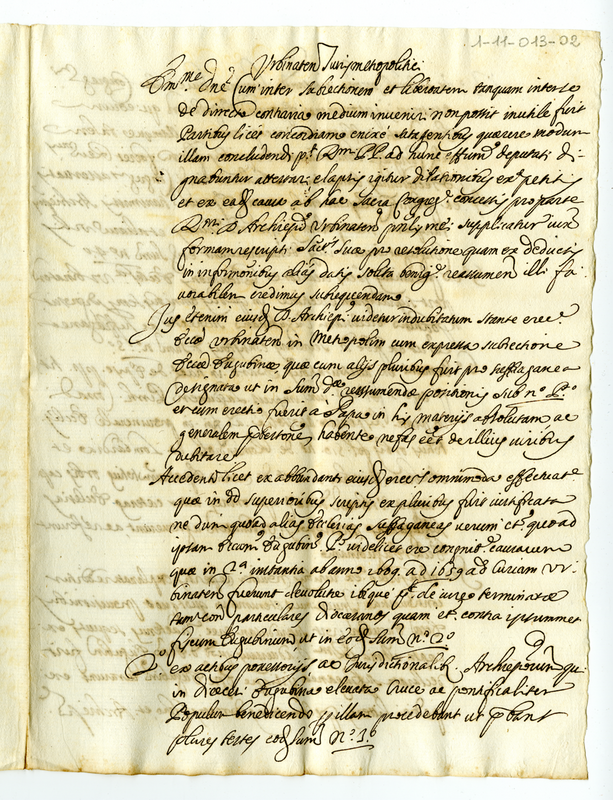 1-11-013-02
Urbinaten Juris metropolitici
Em.me Dne. Cum inter subiectionem et libertatem tanquam inter se
de directo contraria medium inveniri non possit inutile fuit
Partibus licet concordiam enixe satagentibus quærere modum
illam concludendi pt. Rmi PP. ad hunc effum deputati di-
gnabuntur attestari; elapsis igitur dilationibus expetitis
et ex ead. causa ab hac Sacra Congreg. concessis pro parte
Rmi D. Archiepi Urbinaten supplicatur iuxta
formam rescripti Sacr. Suæ pro resolutione quam ex deductis
in informonibus alias datis solita benig. reassumen illi fa-
vorabilem credimus subsequendam.
Jus etenim eiusd. D. Archiepi videtur indubitatum stante erec.e
Eccæ Urbinaten in Metropolim cum expressa subiectione
Eccæ Eugubinæ, quæ cum alijs pluribus fuit pro suffraganea
designata ut in Sum. reassumendæ positionis sub n.o P.o
et cum erectio fuerit a Papa in his materijs absolutam ac
generalem ptatem habente nefas eet de illius viribus
dubitare
Accedente licet ex abbundanti eiusd. erec.s omnimoda effectuate
quæ in dd superioribus scriptis ex pluribus fuit iustificata
ne dum quoad alias Ecclesias suffraganeas verum et quoad
ipsam Eccam Eugubin. P.o videlicet ex cognit.e causarum
quæ in 2.a instantia ab anno 1609. ad 1659 ad Curiam Ur-
binaten fuerunt devolutæ ibique de iure terminatæ
tum con particulares diocesanos quam et contra ipsummet
fiscum Eugubinum ut in eod. Sum. n.o 2.o
2.o ex actibus possessorijs ac Jurisdictionalib. Archieporum qui
in diœcesi Eugubina elevata Cruce ac pontificaliter
Populum benedicendo p illam procedebant ut pbant
plures testes eod. Sum. n.o 3.o